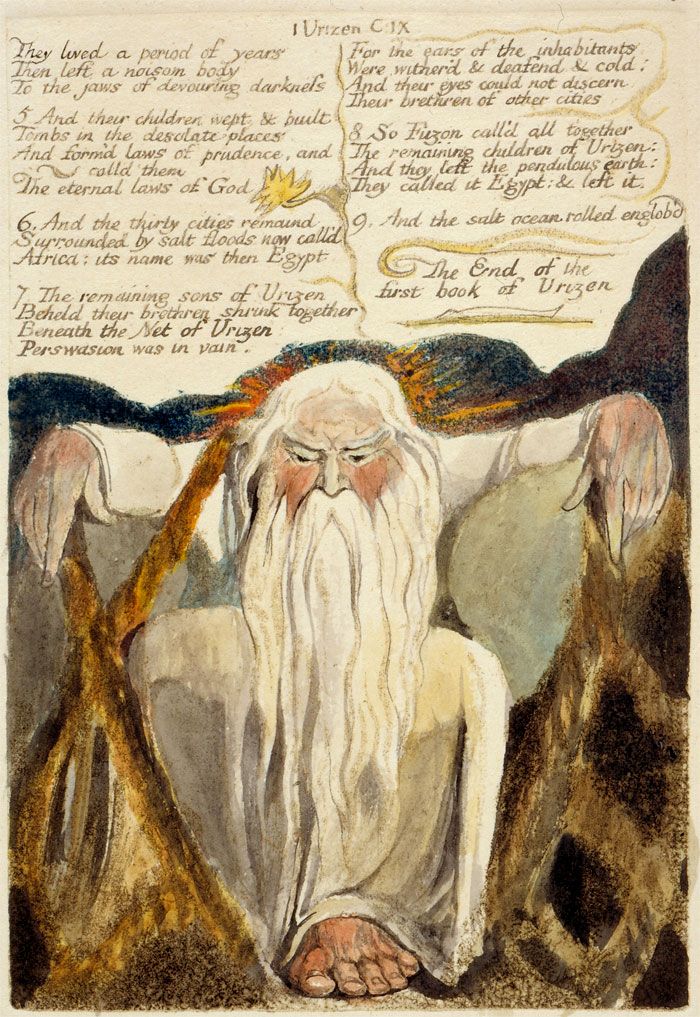 1 Urizen C. IX
They lived a period of years
Then left a noisom body
To the jaws of devouring darkness
5 And their children wept, & built
Tombs in the desolate places
And form'd laws of prudence, and
call'd them
The eternal laws of God
6. And the thirty cities remaind
Surrounded by salt floods now call'd
Africa: its name was then Egypt.
7. The remaining sons of Urizen
Beheld their brethren shrink together
Beneath the Net of Urizen:
Perswasion was in vain.
For the ears of the inhabitants
Were wither'd & deafend & cold:
And their eyes could not discern
Their brethren of other cities
8 So Fuzon call'd all together
The remaining children of Urizen:
And they left the pendulous earth:
They called it Egypt: & left it.
9. And the salt ocean rolled englob'd
The End of the
first book of Urizen